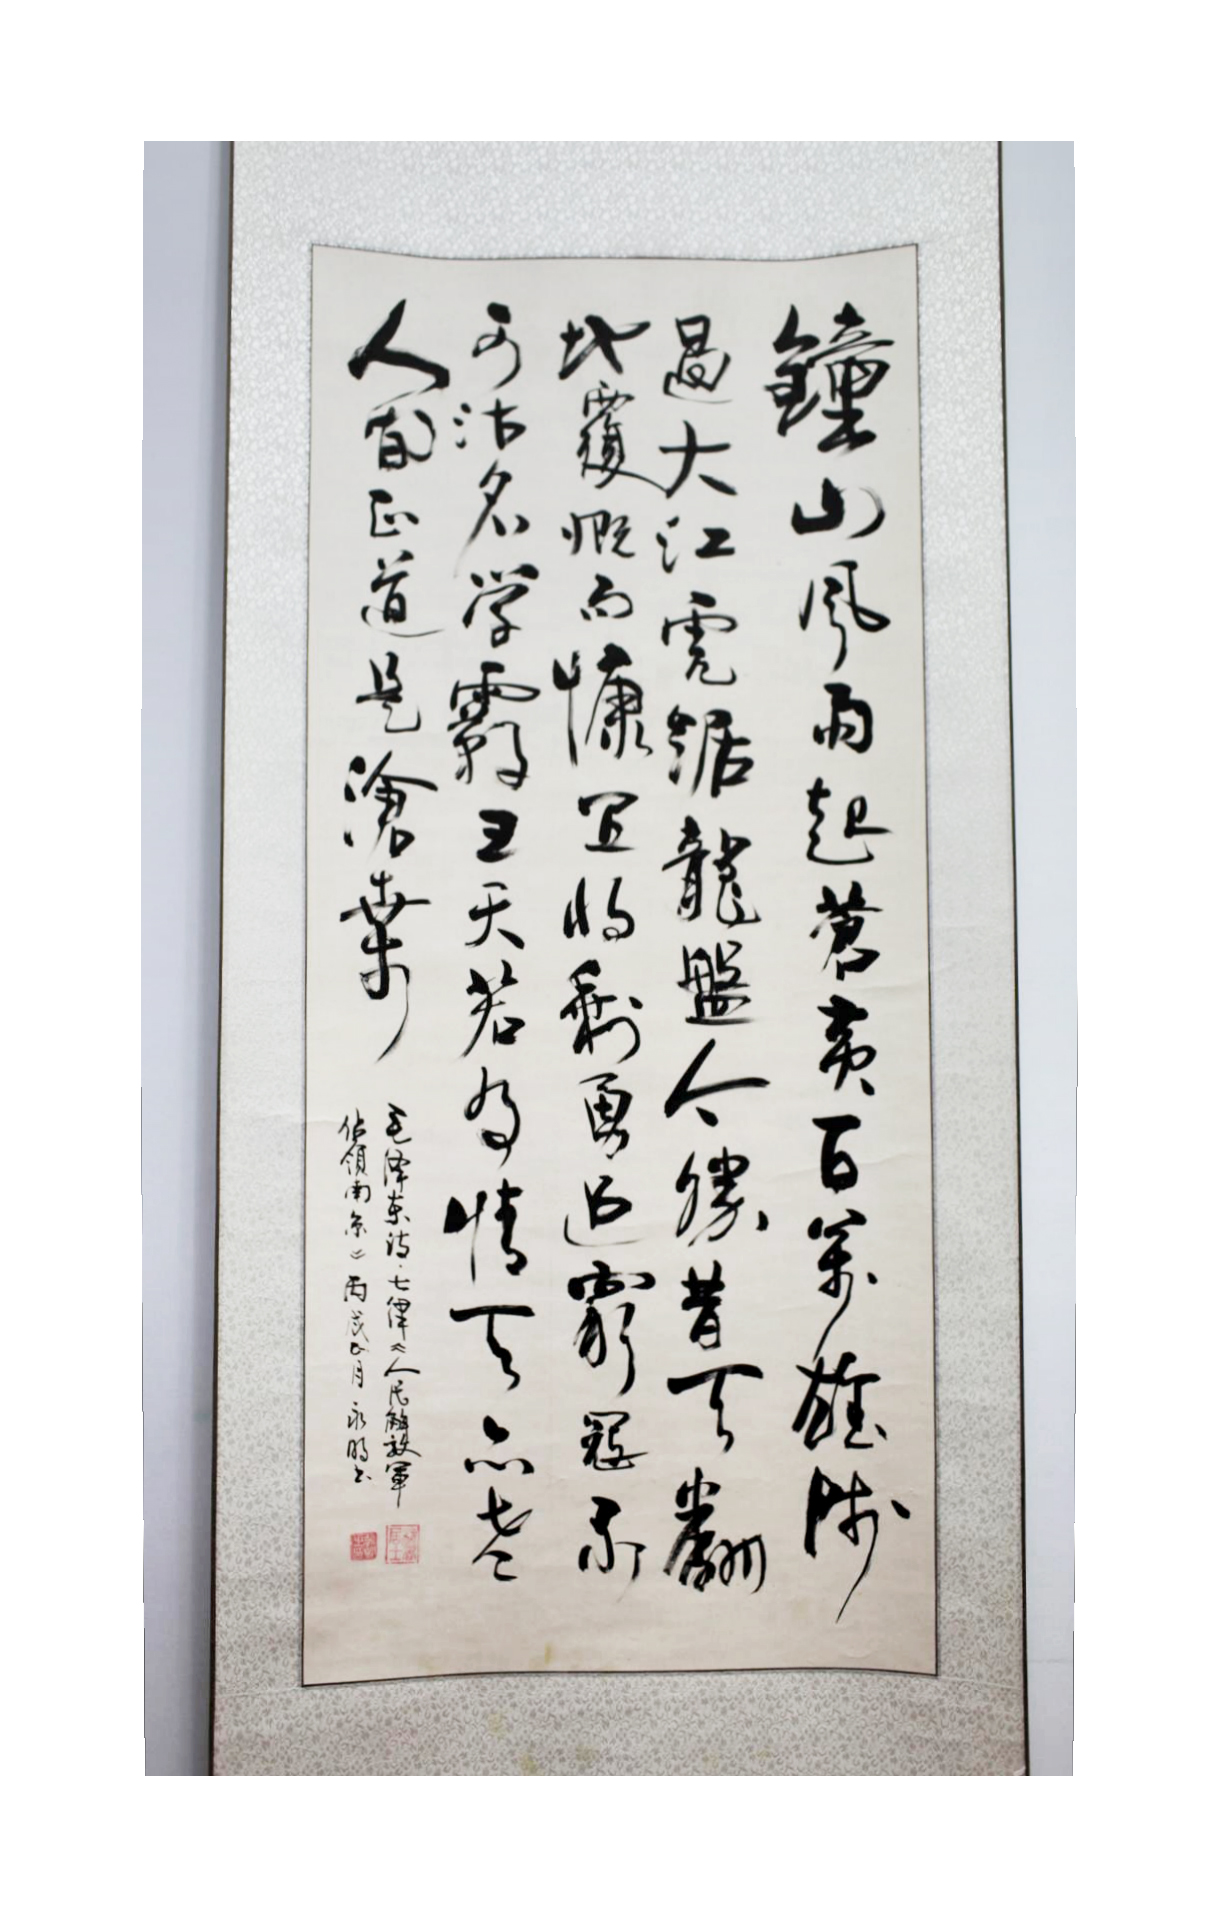 鐘山風雨起蒼黄百萬雄師
過大江虎踞龍盤今勝昔天翻
地覆慨而慷宜將剩勇追窮寇不
可沽名学霸王天若有情天亦老
人間正道是滄桑
毛泽东诗·七律《人民解放军
佔領南京》丙戌正月永明书